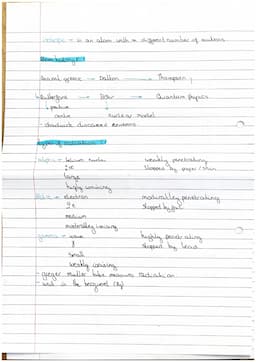 isotope = is an atom with a different number of neutrons
Atom history
Ancient greece → Dalton → Thompson
↳ Rutherford → Bohr → Quantum physics
↓ positive ↓
centre nuclear model
- chadwick discovered neutrons
types of radiation
alpha - helium nuclei weakly penetrating
stopped by paper/skin
large
highly ionising
Beta - electron moderatley penetrating
stopped by
medium
moderatley ionising
gamma - wave highly penetrating
γ stopped by lead
small
weakly ionising
- geiger muller tube measures radiation
- unit is the becquerel (Bq)